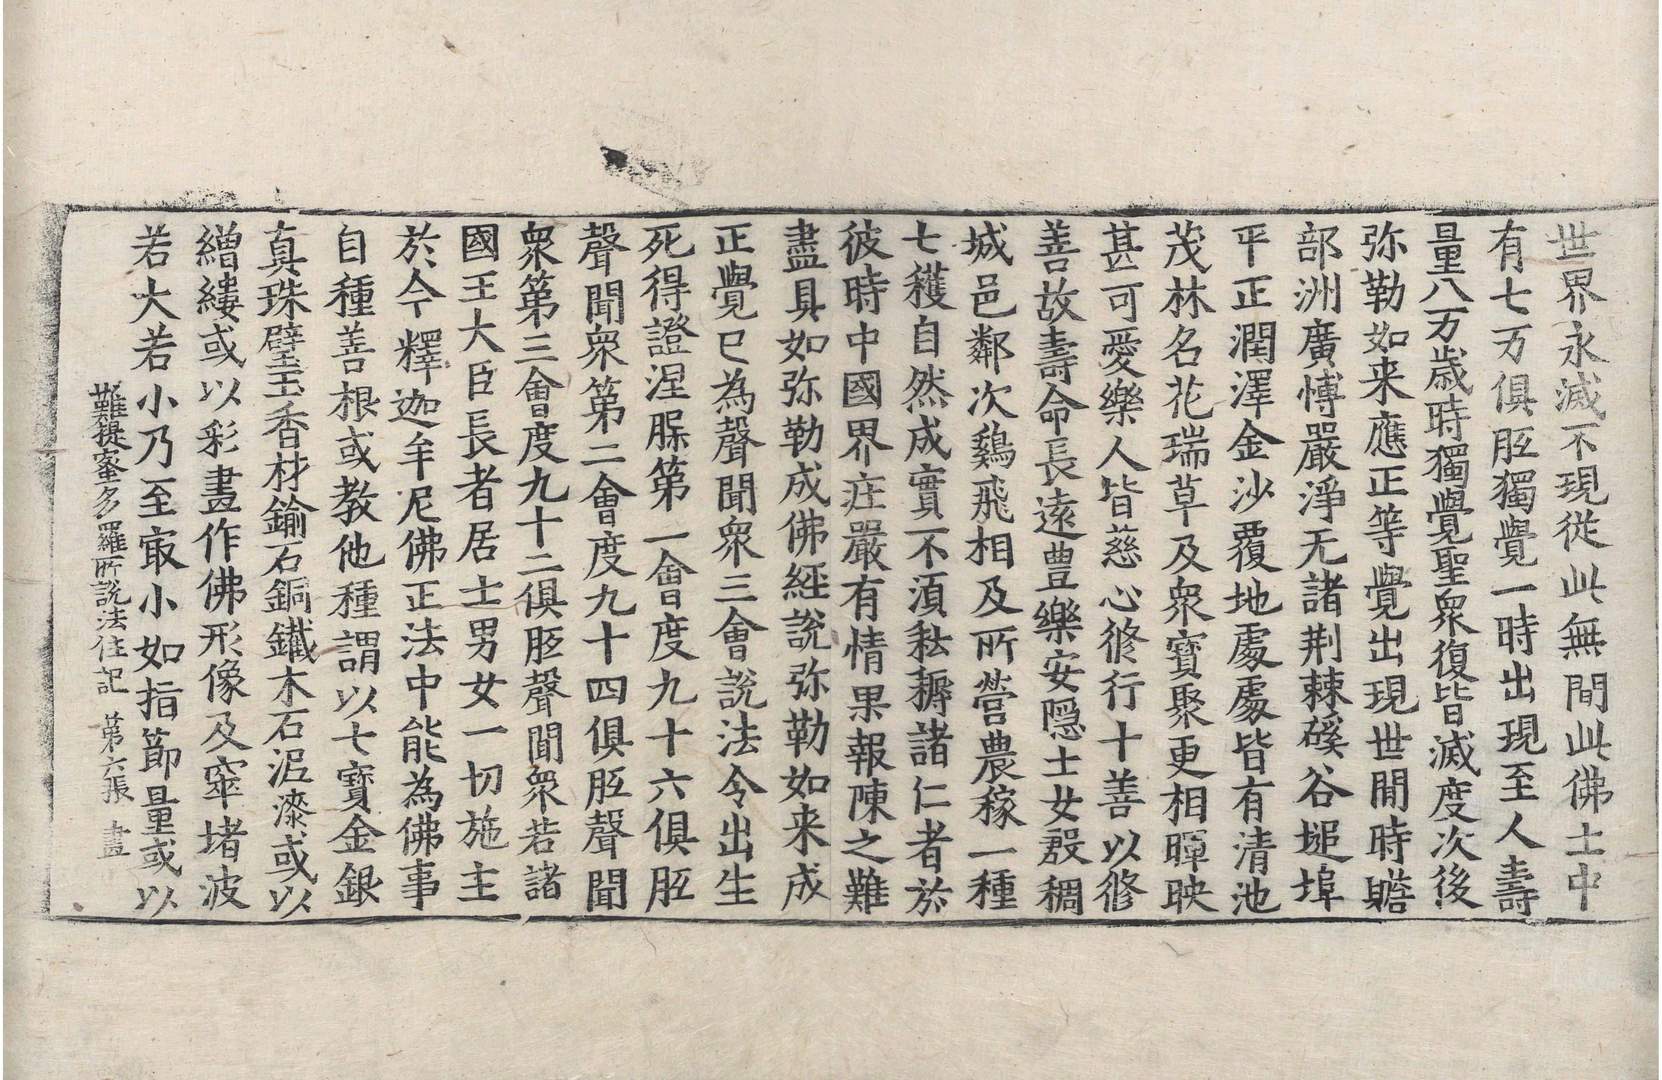 世界永滅不現從此無間此佛土中
有七万俱胝獨覺一時出現至人壽
量八万歲時獨覺聖衆復皆滅度次後
弥勒如来應正等覺出現世間時贍
部洲廣愽嚴淨无諸荆棘磎谷塠埠
平正潤澤金沙覆地處處皆有清池
茂林名花瑞草及衆寳聚更相暉映
甚可愛樂人皆慈心修行十善以修
善故壽命長遠豊樂安隠士女殷稠
城邑鄰次鷄飛相及所營農稼一種
七穫自然成實不湏耘耨諸仁者於
彼時中國界庄嚴有情果報陳之難
盡具如弥勒成佛經說弥勒如来成
正覺已為聲聞衆三會說法令出生
死得證涅槃第一會度九十六俱胝
聲聞衆第二會度九十四俱胝聲聞
衆第三會度九十二俱胝聲聞衆若諸
國王大臣長者居士男女一切施主
於今釋迦牟尼佛正法中能為佛事
自種善根或教他種謂以七寳金銀
真珠璧玉香材鍮石銅鐵木石泥漆或以
繒縷或以彩畫作佛形像及窣堵波
若大若小乃至冣小如指節量或以
難提蜜多羅所說法住記 第六張 盡